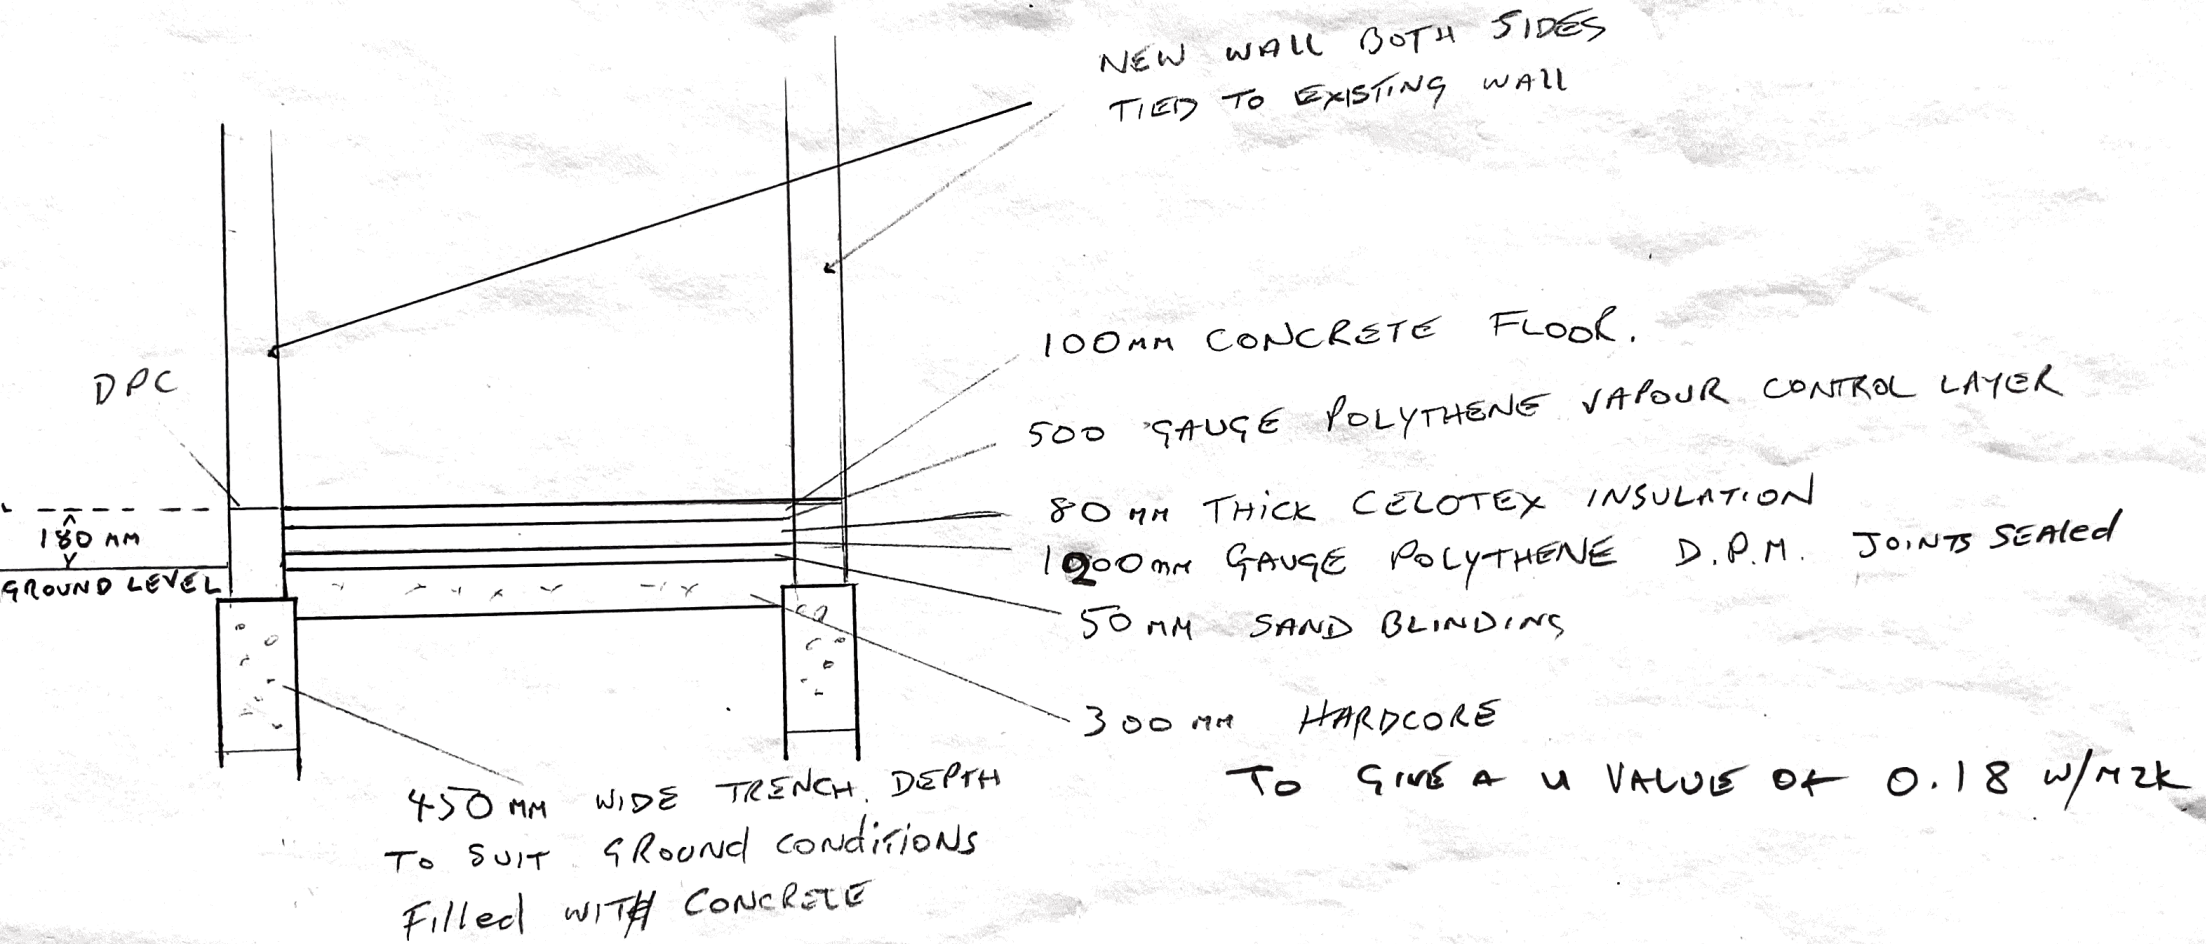 NEW WALL BOTH SIDES
TIED TO EXISTING WALL
100MM CONCRETE FLOOR.
DPC
500 GAUGE POLYTHENE VAPOUR CONTROL LAYER
80 MM THICK CELOTEX INSULATION
180 MM
1200mm GAUGE POLYTHENE D.P.M. JOINTS SEALed
GROUND LEVEL
50 MM SAND BLINDING
300 MM HARDCORE
TO GIVE A U VALUE OF 0.18 W/M2K
450 MM WIDE TRENCH. DEPTH
TO SUIT GROUND CONDITIONS
Filled WITH CONCRETE